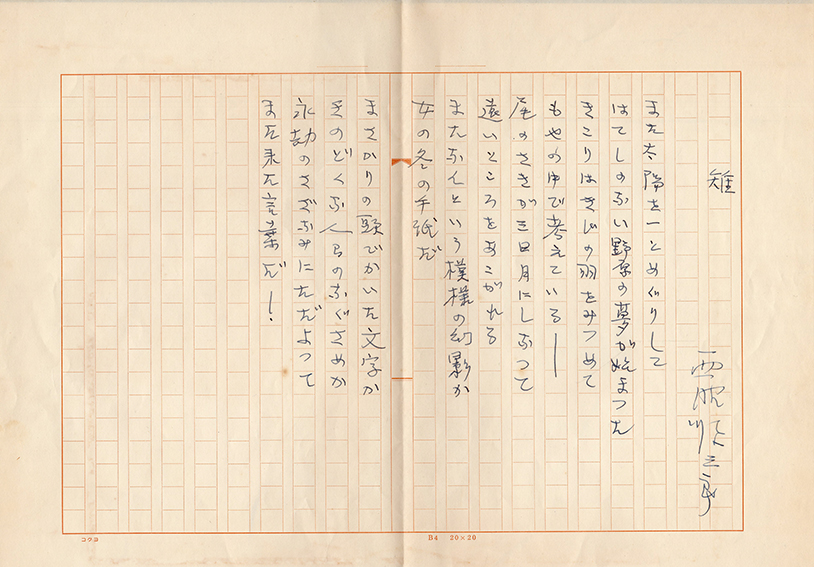 雉
西脇順三郎
また太陽を一とめぐりして
はてしのない野原の夢が始まつた
きこりはきじの羽をみつめて
もやの中で考えている—
尾のさきが三日月にしなつて
遠いところをあこがれる
またなんという模様の幻影か
女の冬の手紙だ
まさかりの頭でかいた文字か
きのどくな人間のなぐさめか
永劫のさざなみにただよつて
また来た言葉だ!
コクヨ
B4 20×20